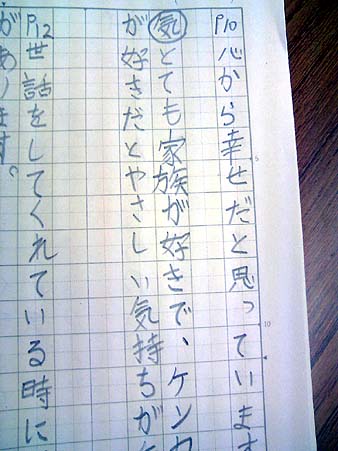 P10 心から幸せだと思っています
㊋とても家族が好きで、ケンカ
が好きだとやさしい気持ちが
P12 世話をしてくれている時に
があります。